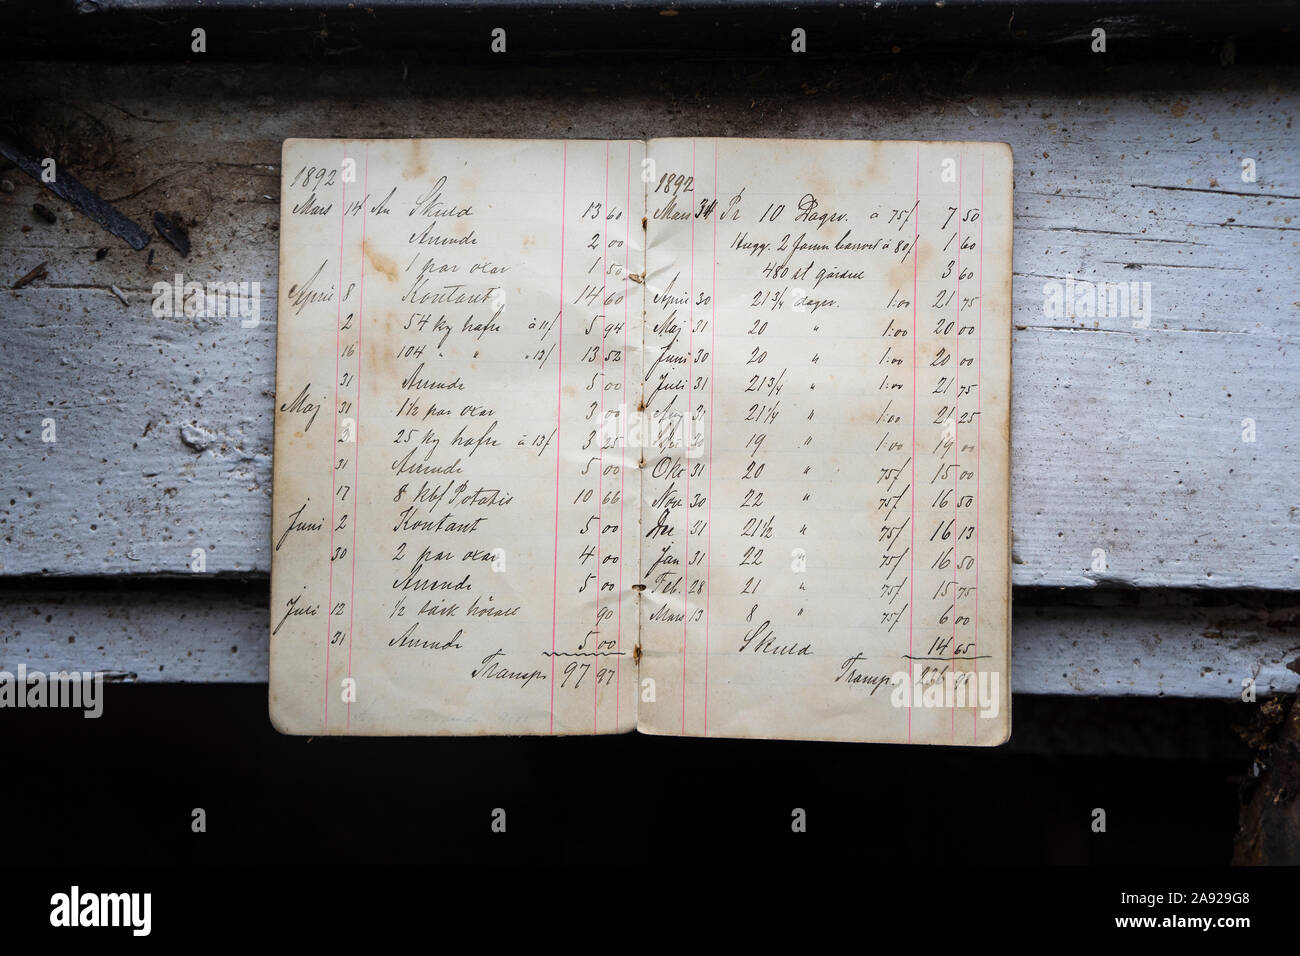 1892
Mars 14 An Skuld 13 60
Amindi 2 00
1 par oxar 1 50
April 8 Kontant 14 60
2 54 kg hafre à 11/ 5 94
16 104 " " " 13/ 13 52
31 Amindi 5 00
Maj 31 1 1/2 par oxar 3 00
2 25 kg hafre à 13/ 3 25
31 Amindi 5 00
17 8 kbf Potatis 10 66
Juni 2 Kontant 5 00
30 2 par oxar 4 00
Amindi 5 00
Juli 12 1/2 90
31 Amindi 5 00
Transp. 97 97
1892
Mars 31 Pr 10 Dagsv. à 75/ 7 50
Hugg. 2 famn à 80/ 1 60
480 st 3 60
April 30 21 3/4 dagsv. 1:00 21 75
Maj 31 20 " 1:00 20 00
Juni 30 20 " 1:00 20 00
Juli 31 21 3/4 " 1:00 21 75
Aug 31 21 1/4 " 1:00 21 25
30 19 " 1:00 19 00
Okt 31 20 " 75/ 15 00
Nov 30 22 " 75/ 16 50
De 31 21 1/2 " 75/ 16 13
Jan 31 22 " 75/ 16 50
Feb. 28 21 " 75/ 15 75
Mars 13 8 " 75/ 6 00
Skuld 14 65
Transp. 236
alamy
Image ID: 2A929G8
www.alamy.com